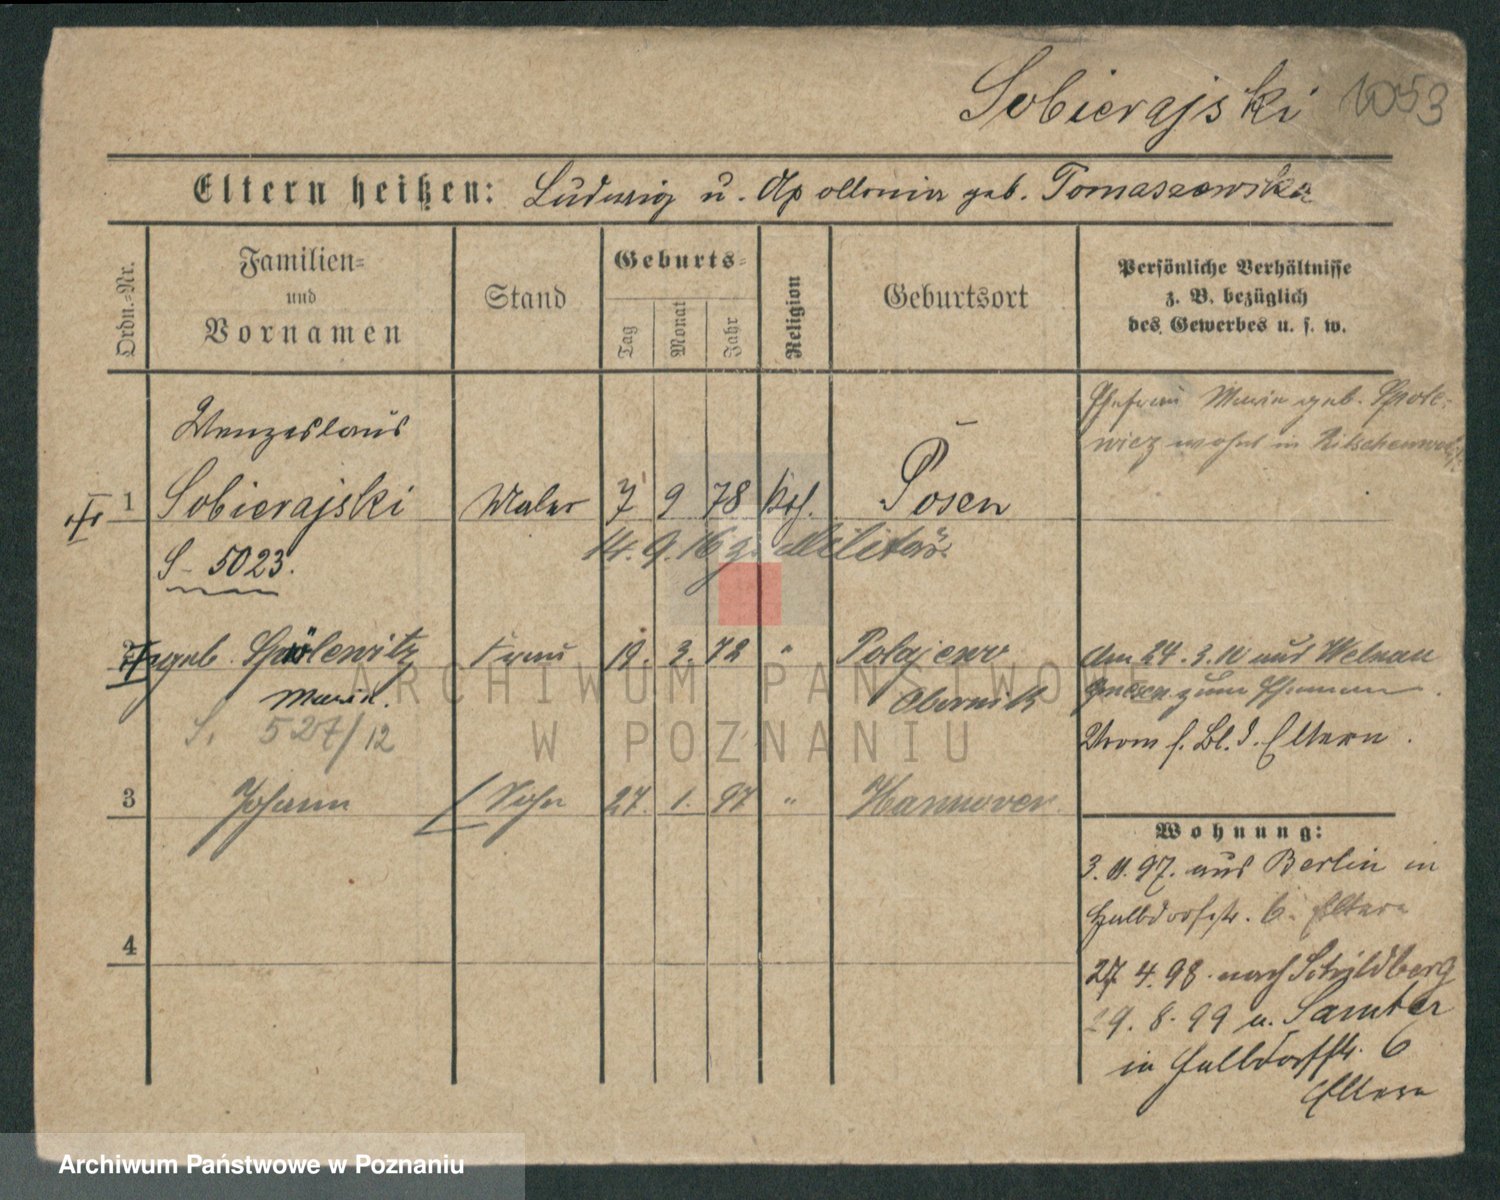 Sobierajski 1053
Eltern heißen: Ludwig u. Apollonia geb. Tomaszewska
Ordn.=Nr.
Familien=
und
Vornamen
Stand
Geburts=
Tag
Monat
Jahr
Religion
Geburtsort
Persönliche Verhältnisse
z. B. bezüglich
des Gewerbes u. s. w.
Wenzeslaus
1 Sobierajski Maler 7 9 78 kth. Posen
S - 5023.
14. 9. 16 z. Militär.
Ehefrau Marie geb. Spole-
wicz wohnt in Ritschenwalde
geb. Spolewitz Frau 19. 3. 72 " Polajewo
Maria. Obornik
S. 527/12
Am 24. 3. 10 aus Welnau
Gnesen zum Ehemann.
Vrom s. Bl. d. Eltern.
3 Johann Sohn 27. 1. 97 " Hannover
4
Wohnung:
3. 11. 97. aus Berlin in
Halbdorfstr. 6. Eltern
27. 4. 98. nach Schildberg
29. 8. 99 u. Samter
in Halbdorfstr. 6
Eltern
ARCHIWUM PAŃSTWOWE
W POZNANIU
Archiwum Państwowe w Poznaniu